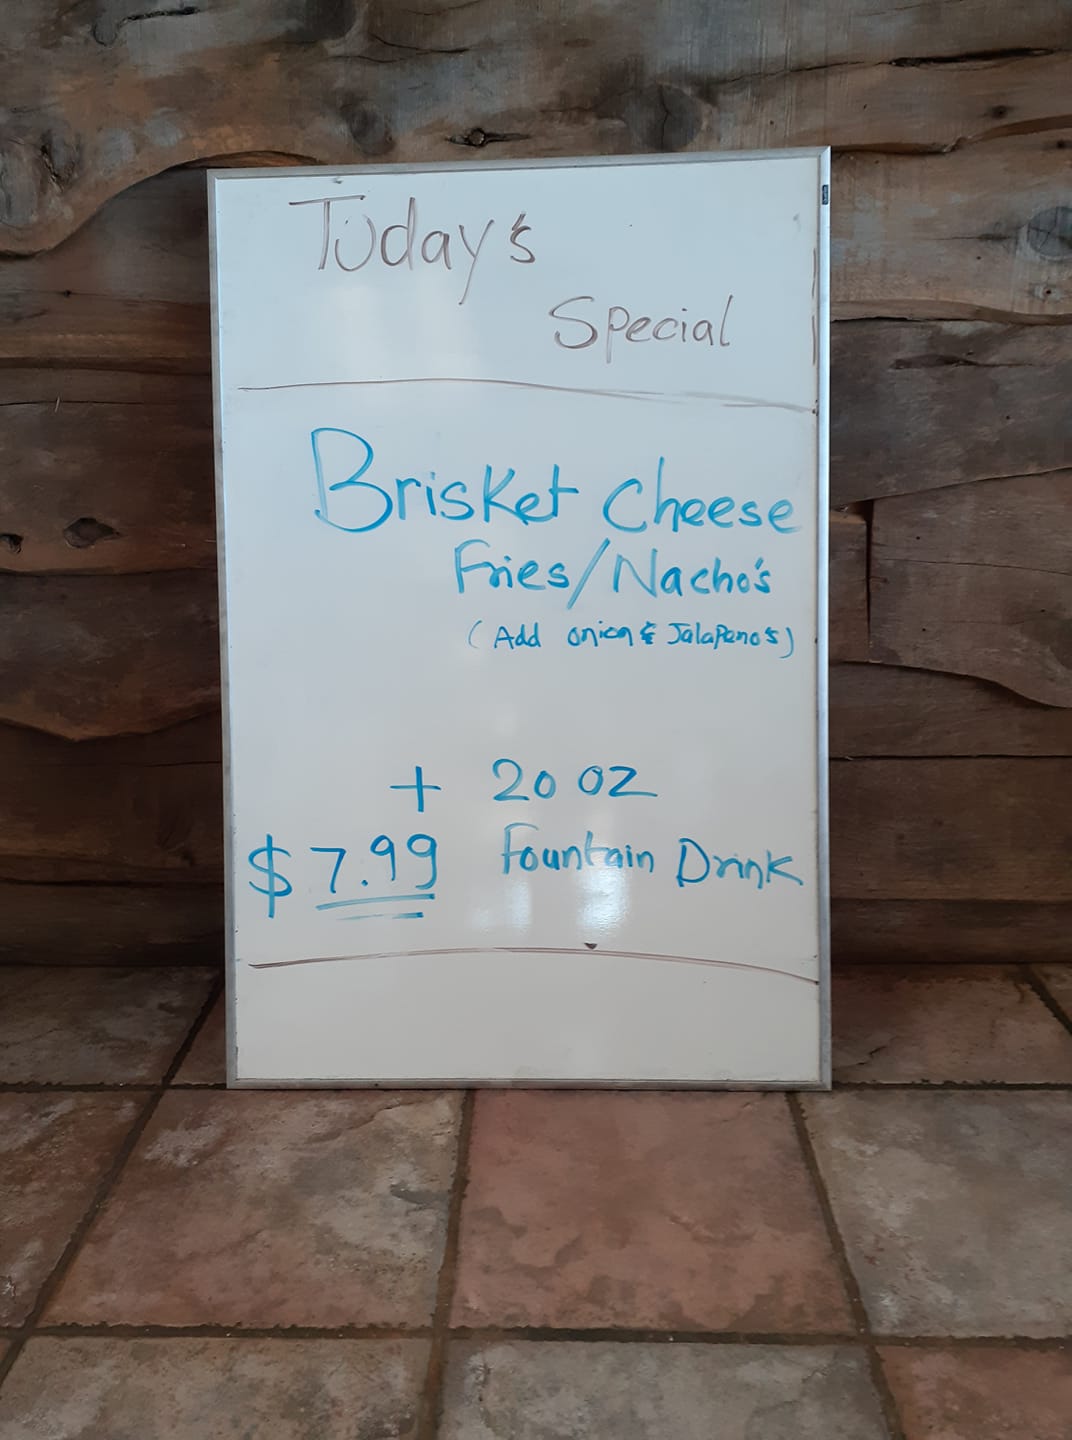 Today's
Special
Brisket Cheese
Fries/Nacho's
(Add onion & Jalapeno's)
+ 20 oz
$7.99 Fountain Drink